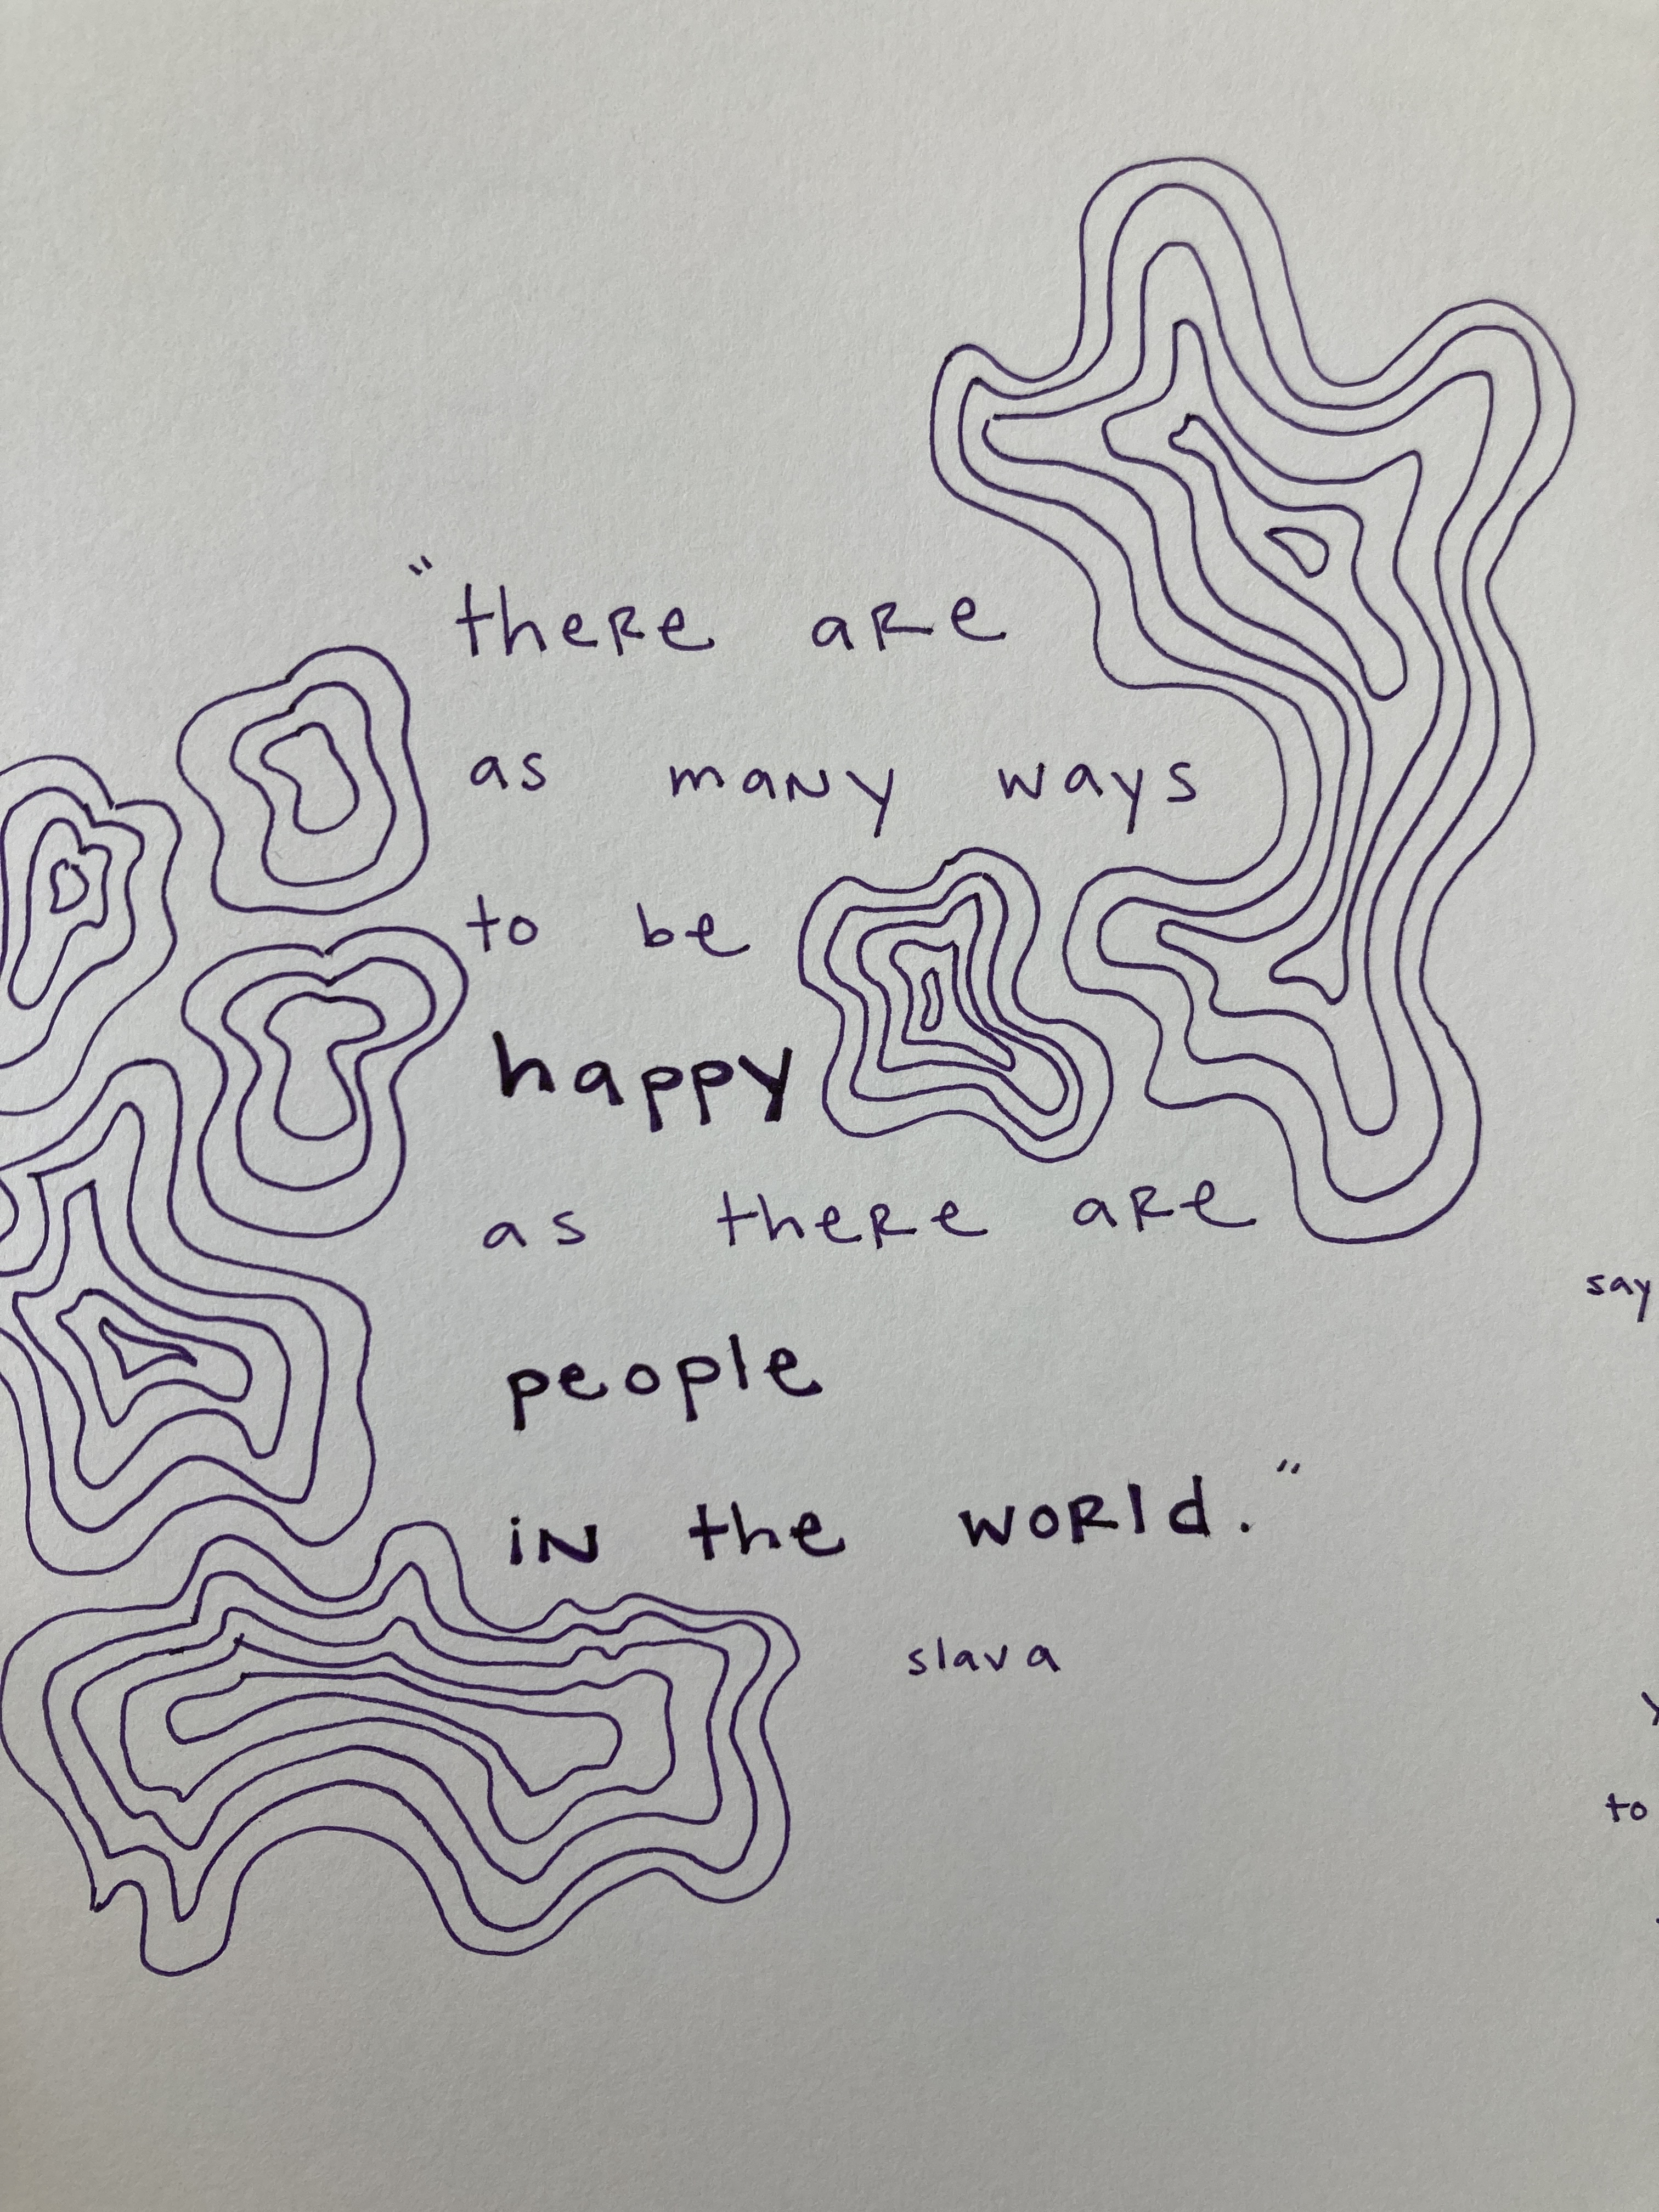 "there are
as many ways
to be
happy
as there are
people
in the world."
slava
say
to